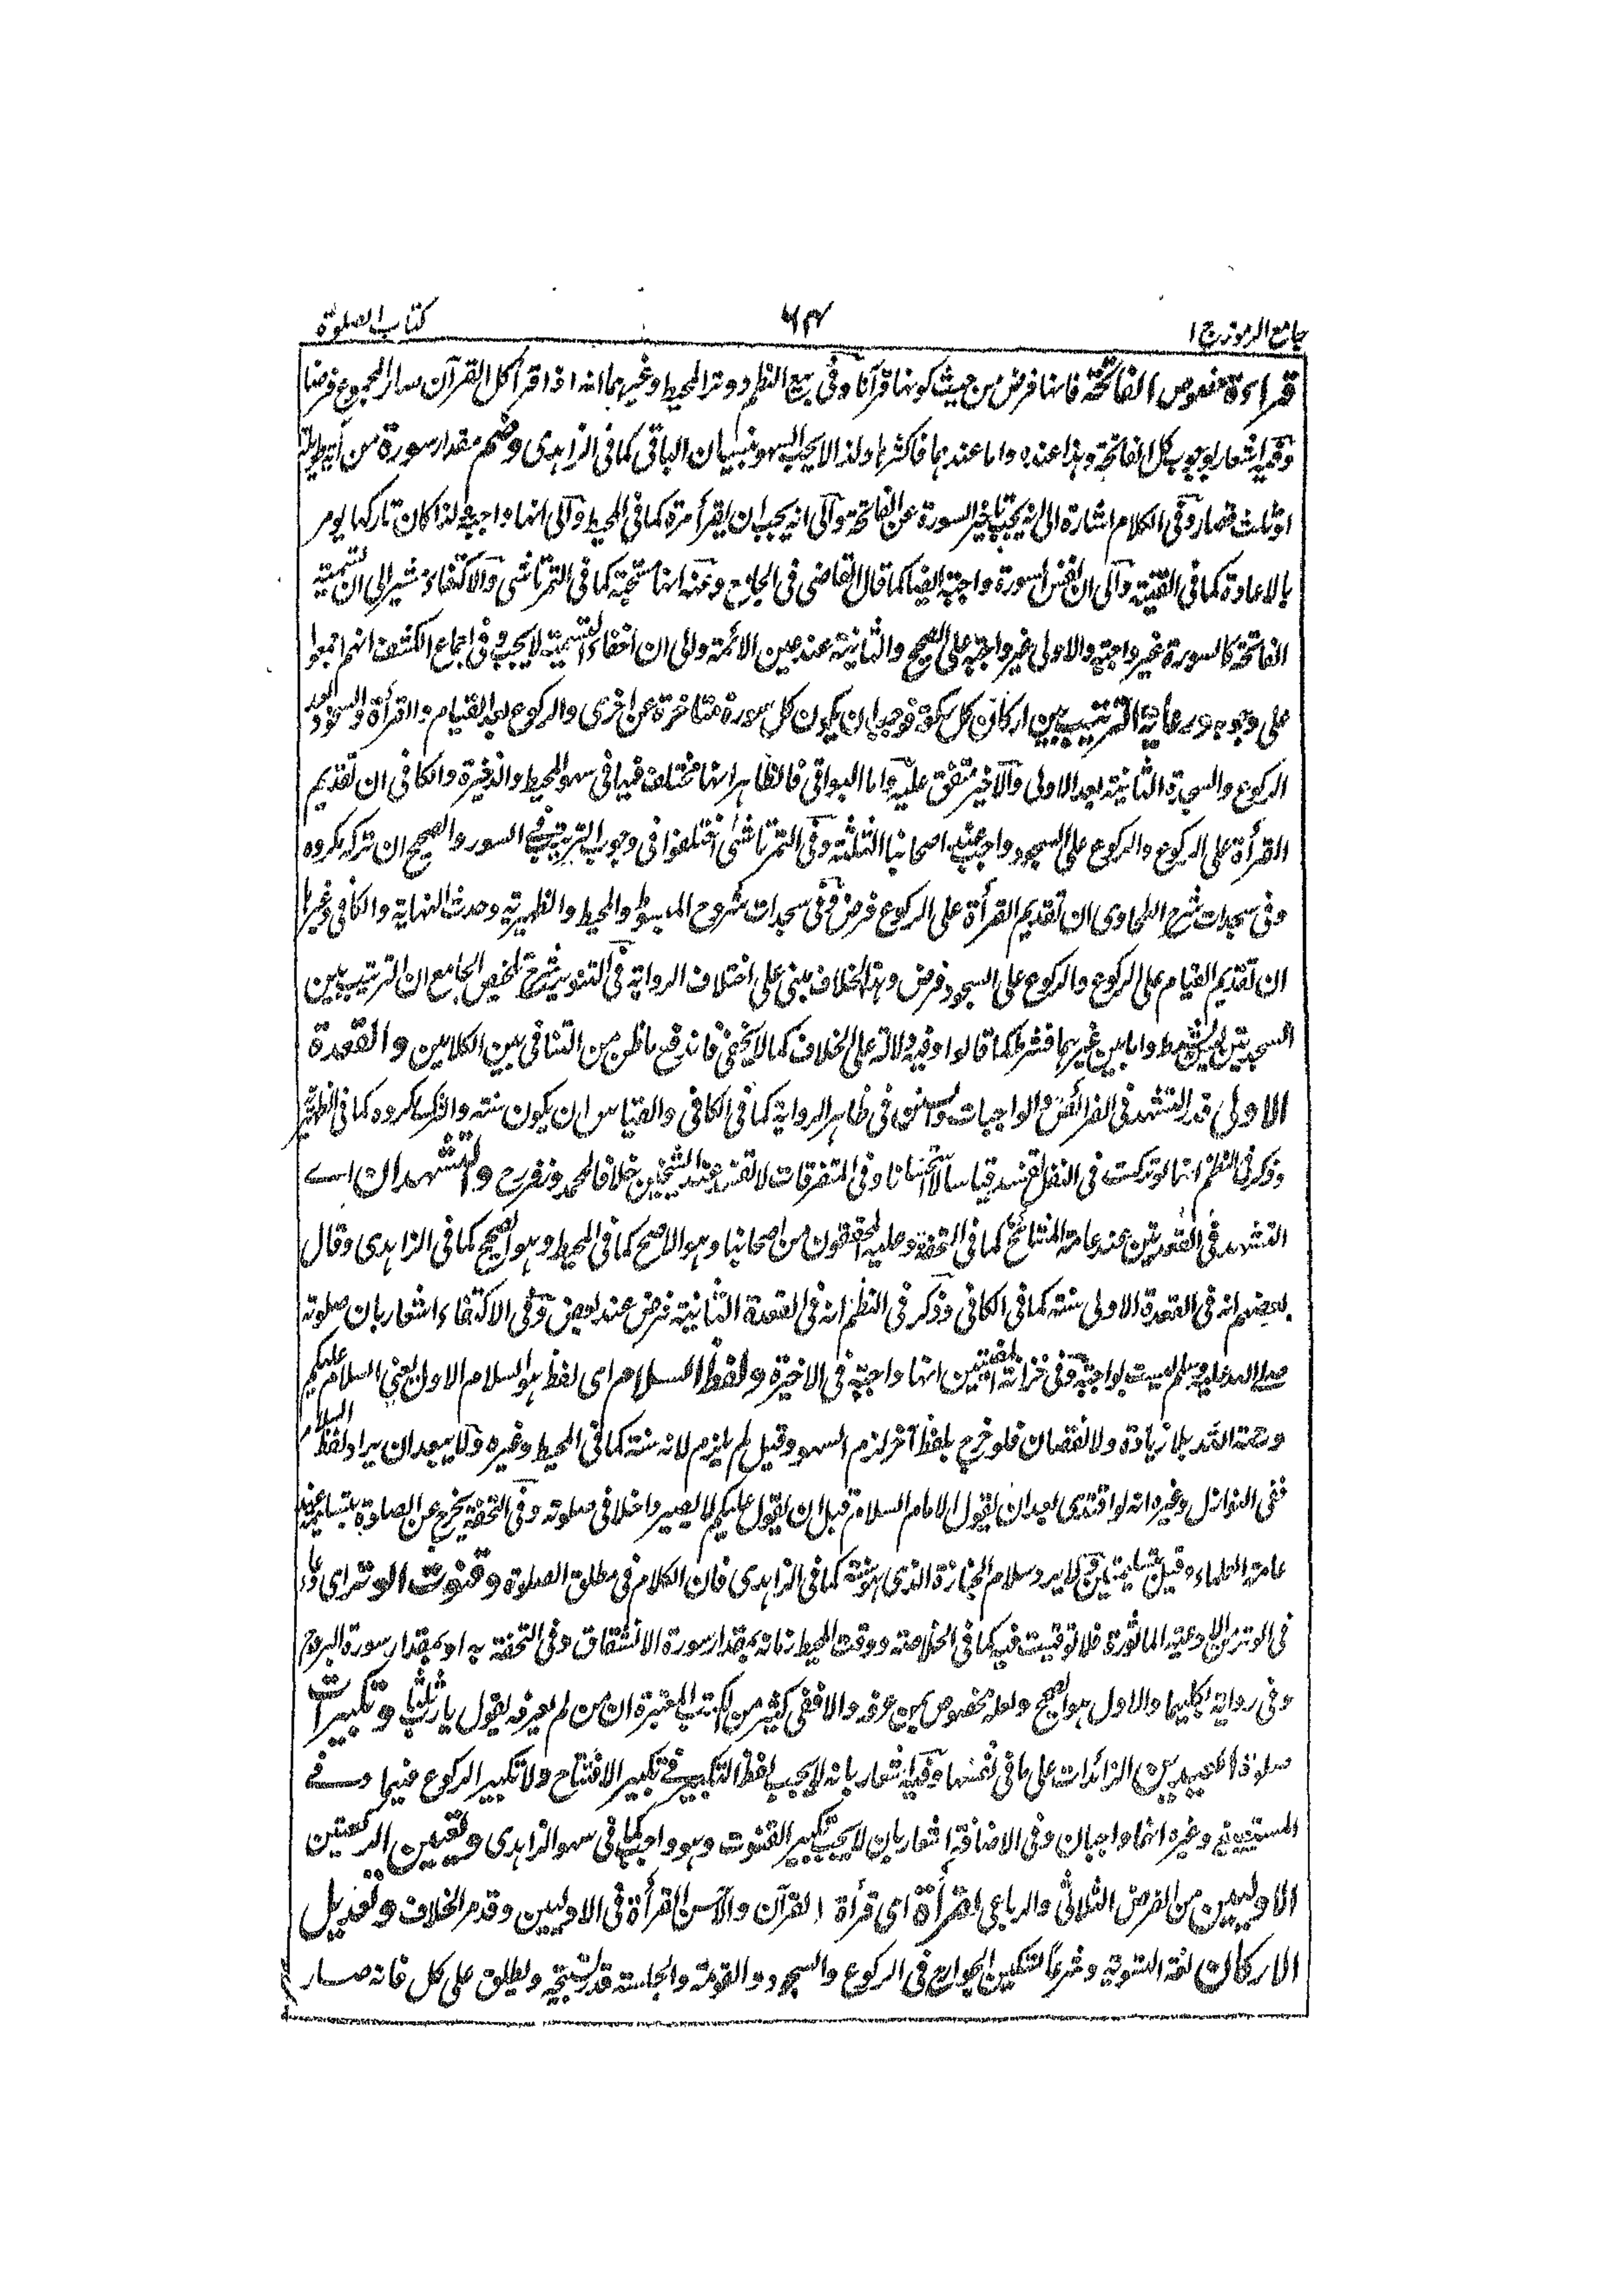 جامع الرموز ج ١
٦٤
كتاب الصلوة
قراءة مخصوص الفاتحة فانها فرض من حيث كونها قرآنا وفى بيع النظم دون المحيط وغيرهما انه اذا قرأ كل القرآن صار المجموع فرضا
وفيه اشعار بوجوب كل الفاتحة وهذا عنده واما عندهما فاكثرها ولذا لا يجب السهو بنسيان الباقى كما فى الزاهدى وضم مقدار سورة من آية طويلة
او ثلث قصار وفى الكلام اشارة الى انه يجب تاخير السورة عن الفاتحة والى انه يجب ان يقرأ مرة كما فى المحيط والى انها واجبة ولذا كان تاركها يومر
بالاعادة كما فى القنية والى ان نفس السورة واجبة ايضا كما قال القاضى فى الجامع وعنه انها مستحبة كما فى التمرتاشى والاكتفاء مشير الى ان تسمية
الفاتحة كالسورة غير واجبة والاولى غير واجبة على الصحيح والثانية عند عين الائمة والى ان اخفاء التسمية لا يجب وفى اجماع الكشف انهم اجمعوا
على وجوبه ورعاية الترتيب بين اركان كل ركعة فوجب ان يكون كل سورة متاخرة عن اخرى والركوع بعد القيام والقرأة والسجود بعد
الركوع والسجدة الثانية بعد الاولى والاخير متفق عليه واما البواقى فالظاهر انها مختلف فيها فى سهو المحيط والذخيرة والكافى ان تقديم
القرأة على الركوع والركوع على السجود واجب عند اصحابنا الثلثة وفى التمرتاشى اختلفوا فى وجوب الترتيب فى السور والصحيح ان تركه مكروه
وفى سجدات شرح الطحاوى ان تقديم القرأة على الركوع فرض وفى سجدات شروح المبسوط والمحيط والظهيرية وحدث النهاية والكافى وغيرها
ان تقديم القيام على الركوع والركوع على السجود فرض وهذا الخلاف مبنى على اختلاف الرواية فى التنوير شرح تلخيص الجامع ان الترتيب بين
السجدتين ليس بشرط واما بين غيرهما فشرط كما قالوا وفيه دلالة على الخلاف كما لا يخفى فاندفع ما ظن من التنافى بين الكلامين والقعدة
الاولى قدر التشهد فى الفرائض والواجبات والسنن فى ظاهر الرواية كما فى الكافى والقياس ان يكون سنة والترك مكروه كما فى الظهيرية
وذكر فى النظم انها لو تركت فى النفل تفسد قياسا لا استحسانا وفى المتفرقات لا تفسد عند الشيخين خلافا لمحمد وزفر رح والتشهدان اى
التشهد فى القعدتين عند عامة المشائخ كما فى التحفة وعليه المحققون من اصحابنا وهو الاصح كما فى المحيط وهو الصحيح كما فى الزاهدى وقال
بعضهم انه فى القعدة الاولى سنة كما فى الكافى وذكر فى النظم انه فى القعدة الثانية فرض عند بعض وفى الاكتفاء اشعار بان صلوته
صلى الله عليه وسلم ليست بواجبة وفى خزانة المفتيين انها واجبة فى الاخيرة ولفظ السلام اى لفظ هو السلام الاول يعنى السلام عليكم
ورحمة الله بلا زيادة ولا نقصان فلو خرج بلفظ آخر لزم السهو وقيل لم يلزم لانه سنة كما فى المحيط وغيره ولا يبعد ان يراد لفظ السلام
ففى النوازل وغيره انه لو اقتدى بعد ان يقول الامام السلام قبل ان يقول عليكم لا يصير داخلا فى صلوته وفى التحفة يخرج عن الصلوة بتسليمة عند
عامة العلماء وقيل بتسليمتين فلا يرد سلام الجنازة الذى هو سنة كما فى الزاهدى فان الكلام فى مطلق الصلوة وقنوت الوتر اى دعاء
فى الوتر من الادعية الماثورة فلا توقيت فيه كما فى الخلاصة ووقت المحيط زمانه بمقدار سورة الانشقاق وفى التحفة به او بمقدار سورة البروج
وفى رواية بكليهما والاول هو الصحيح ولعله مخصوص بمن عرفه والا ففى كثير من الكتب المعتبرة ان من لم يعرفه يقول يا رب ثلثا وتكبيرات
صلوة العيدين الزائدات على ما فى ثمنها وفيه اشعار بانه لا يجب لفظ التكبير فى تكبير الافتتاح ولا تكبير الركوع فيهما وفى
المستصفى وغيره انهما واجبان وفى الاضافة اشعار بان لا يجب تكبير القنوت وهو واجب كما فى سهو الزاهدى وتعيين الركعتين
الاوليين من الفرض الثلاثى والرباعى لقرأة اى قرأة القرآن والاسن القرأة فى الاوليين وقد مر الخلاف وتعديل
الاركان لغة التسوية وشرعا تسكين الجوارح فى الركوع والسجود والقومة والجلسة قدر تسبيحة ويطلق على كل فانه صار